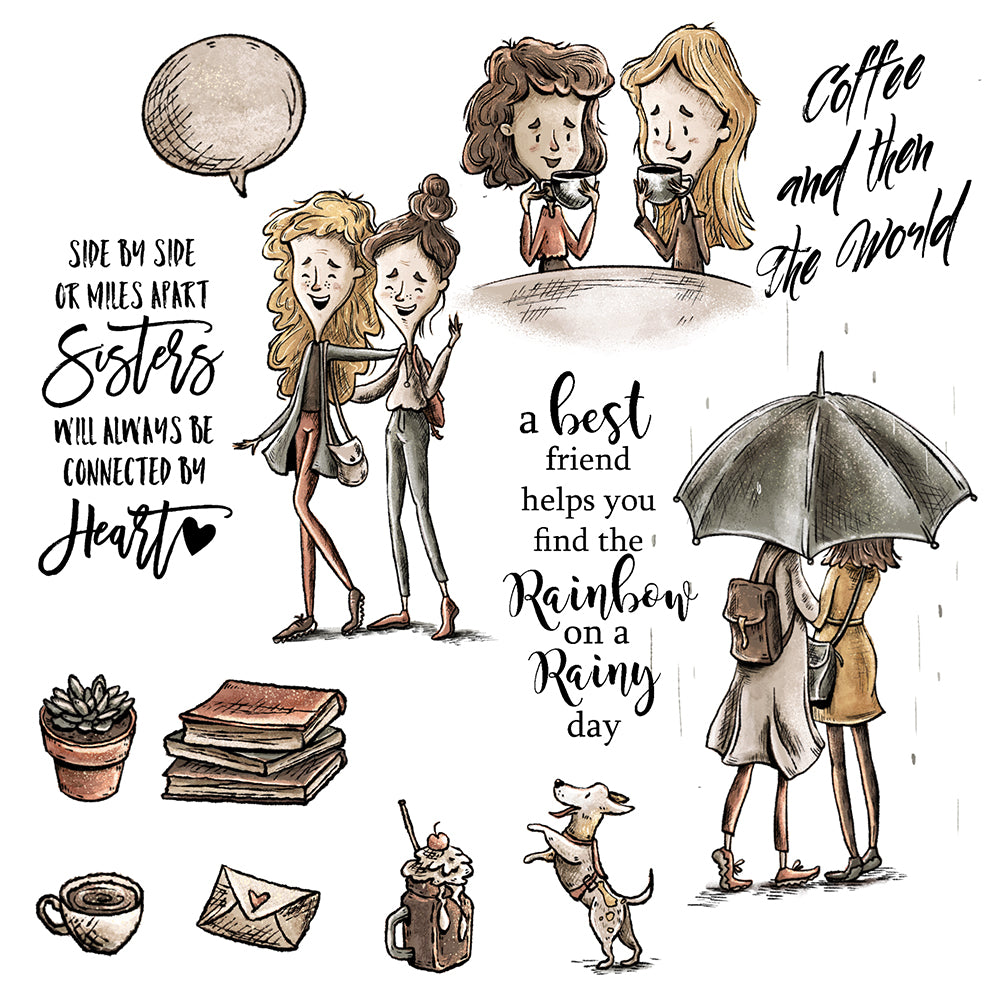 SIDE BY SIDE
OR MILES APART
Sisters
WILL ALWAYS BE
CONNECTED BY
Heart
Coffee
and then
the World
a best
friend
helps you
find the
Rainbow
on a
Rainy
day